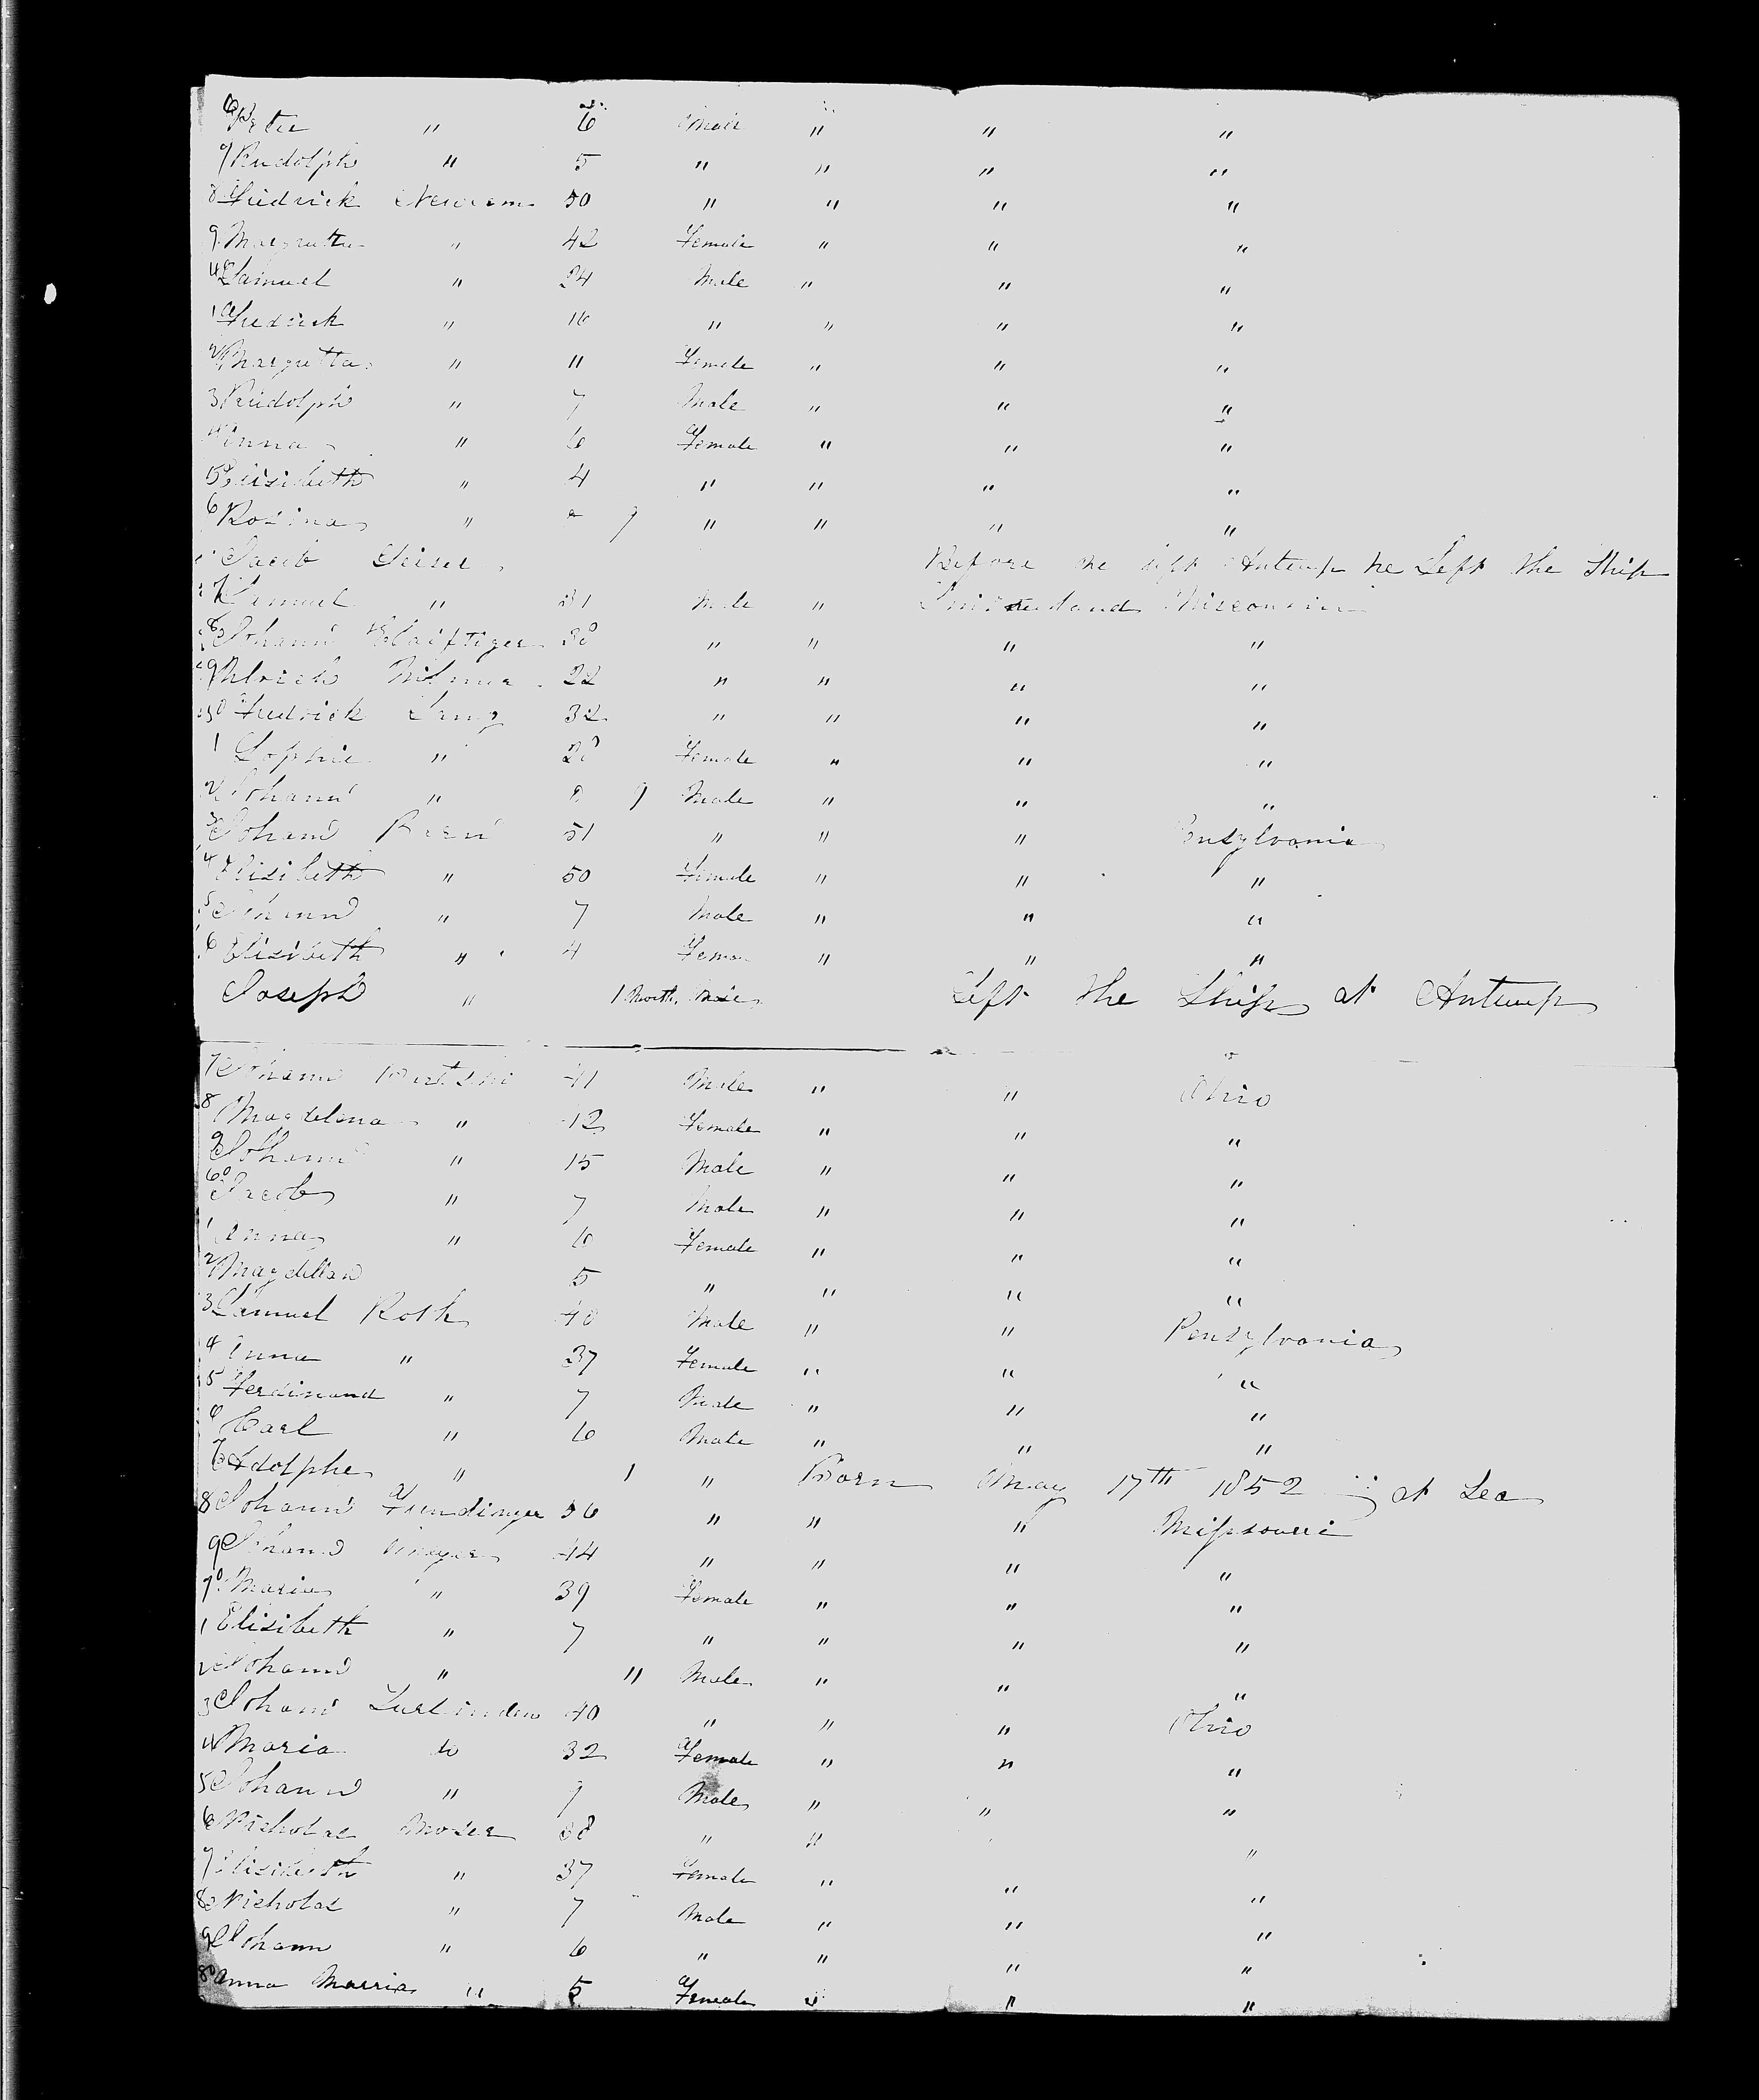 6 Peter " 6 Male " " "
7 Rudolph " 5 " " " "
8 Fredrick 50 " " " "
9 Margretta " 42 Female " " "
40 Samuel " 24 Male " " "
1 Fredrick " 16 " " " "
2 Margretta " 11 Female " " "
3 Rudolph " 7 Male " " "
4 Anna " 6 Female " " "
5 Elisibeth " 4 " " " "
6 Rosina " 9 " " " "
Jacob Geiser Before we left Antwerp he Left the Ship
7 Samuel " 31 Male " Switzerland Wisconsin
8 Johann " " " "
9 Ulrich 22 " " " "
50 Fredrick Lang 32 " " " "
1 Sophie " Female " " "
2 Johann " 9 Male " " "
3 Johann 51 " " " Pensylvania
4 Elisibeth " 50 Female " " "
5 Johann " 7 Male " " "
6 Elisibeth " 4 Female " " "
Joseph " 1 Month Male Left the Ship at Antwerp
7 Johann 41 Male " " Ohio
8 Magdelena " 42 Female " " "
9 Johann " 15 Male " " "
60 Jacob " 7 Male " " "
1 Anna " 6 Female " " "
2 Magdellan 5 " " " "
3 Samuel Roth 40 Male " " Pensylvania
4 Anna " 37 Female " " "
5 Ferdinand " 7 Male " " "
6 Carl " 6 Male " " "
7 Adolphe " 1 " Born May 17th 1852 at Sea
8 Johann 56 " " " Missouri
9 Johann Meyer 44 " " " "
70 Maria " 39 Female " " "
1 Elisibeth " 7 " " " "
2 Johann " 11 Male " " "
3 Johann 40 " " " Ohio
4 Maria do 32 Female " " "
5 Johann " 9 Male " " "
6 Nicholas Moser 38 " " "
7 Elisibeth " 37 Female " " "
8 Nicholas " 7 Male " " "
9 Johann " 6 " " " "
80 Anna Marria " 5 Female " " "